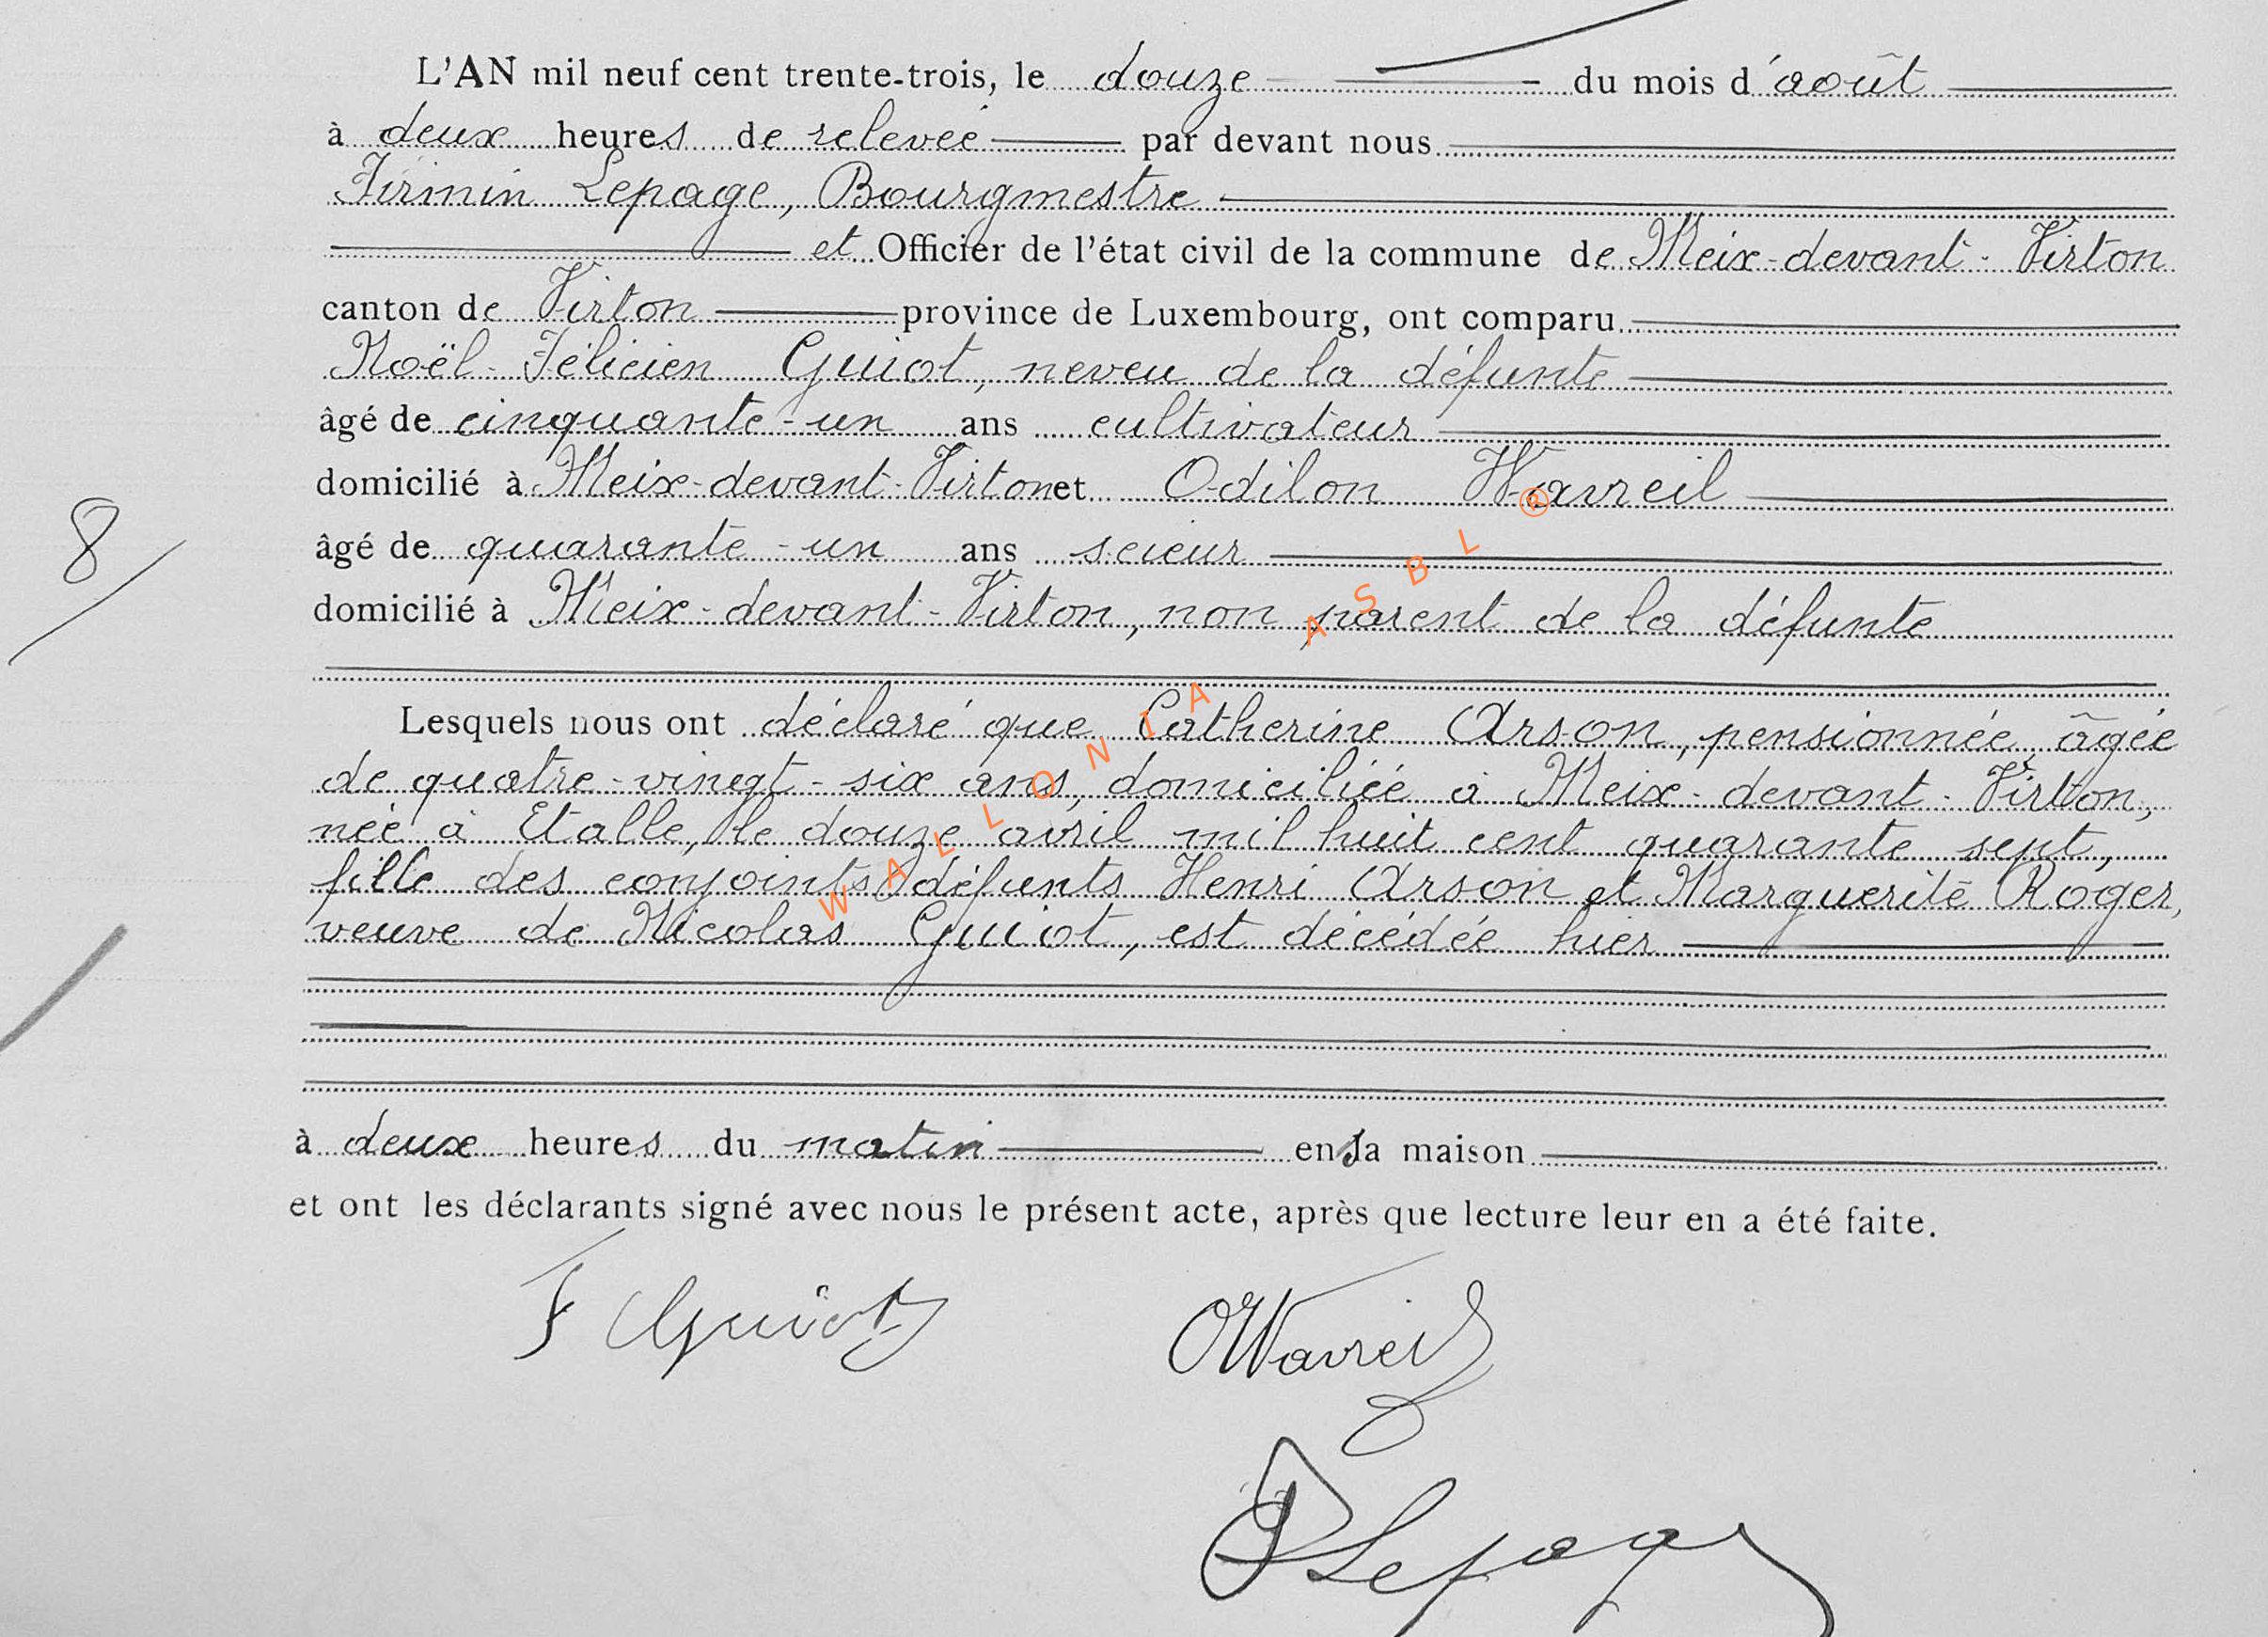 L'AN mil neuf cent trente-trois, le douze du mois d'août
à deux heures de relevée par devant nous
Firmin Lepage, Bourgmestre
et Officier de l'état civil de la commune de Meix-devant-Virton
canton de Virton province de Luxembourg, ont comparu
Noël-Félicien Guiot, neveu de la défunte
âgé de cinquante-un ans cultivateur
domicilié à Meix-devant-Virton et Odilon Wavreil
âgé de quarante-un ans scieur
domicilié à Meix-devant-Virton, non parent de la défunte
8
Lesquels nous ont déclaré que Catherine Arson, pensionnée, âgée
de quatre-vingt-six ans, domiciliée à Meix-devant-Virton,
née à Etalle, le douze avril mil huit cent quarante sept,
fille des conjoints défunts Henri Arson et Marguerite Roger,
veuve de Nicolas Guiot, est décédée hier
à deux heures du matin en sa maison
et ont les déclarants signé avec nous le présent acte, après que lecture leur en a été faite.
F Guiot OWavreil
FLepage
WALLONIA ASBL ®